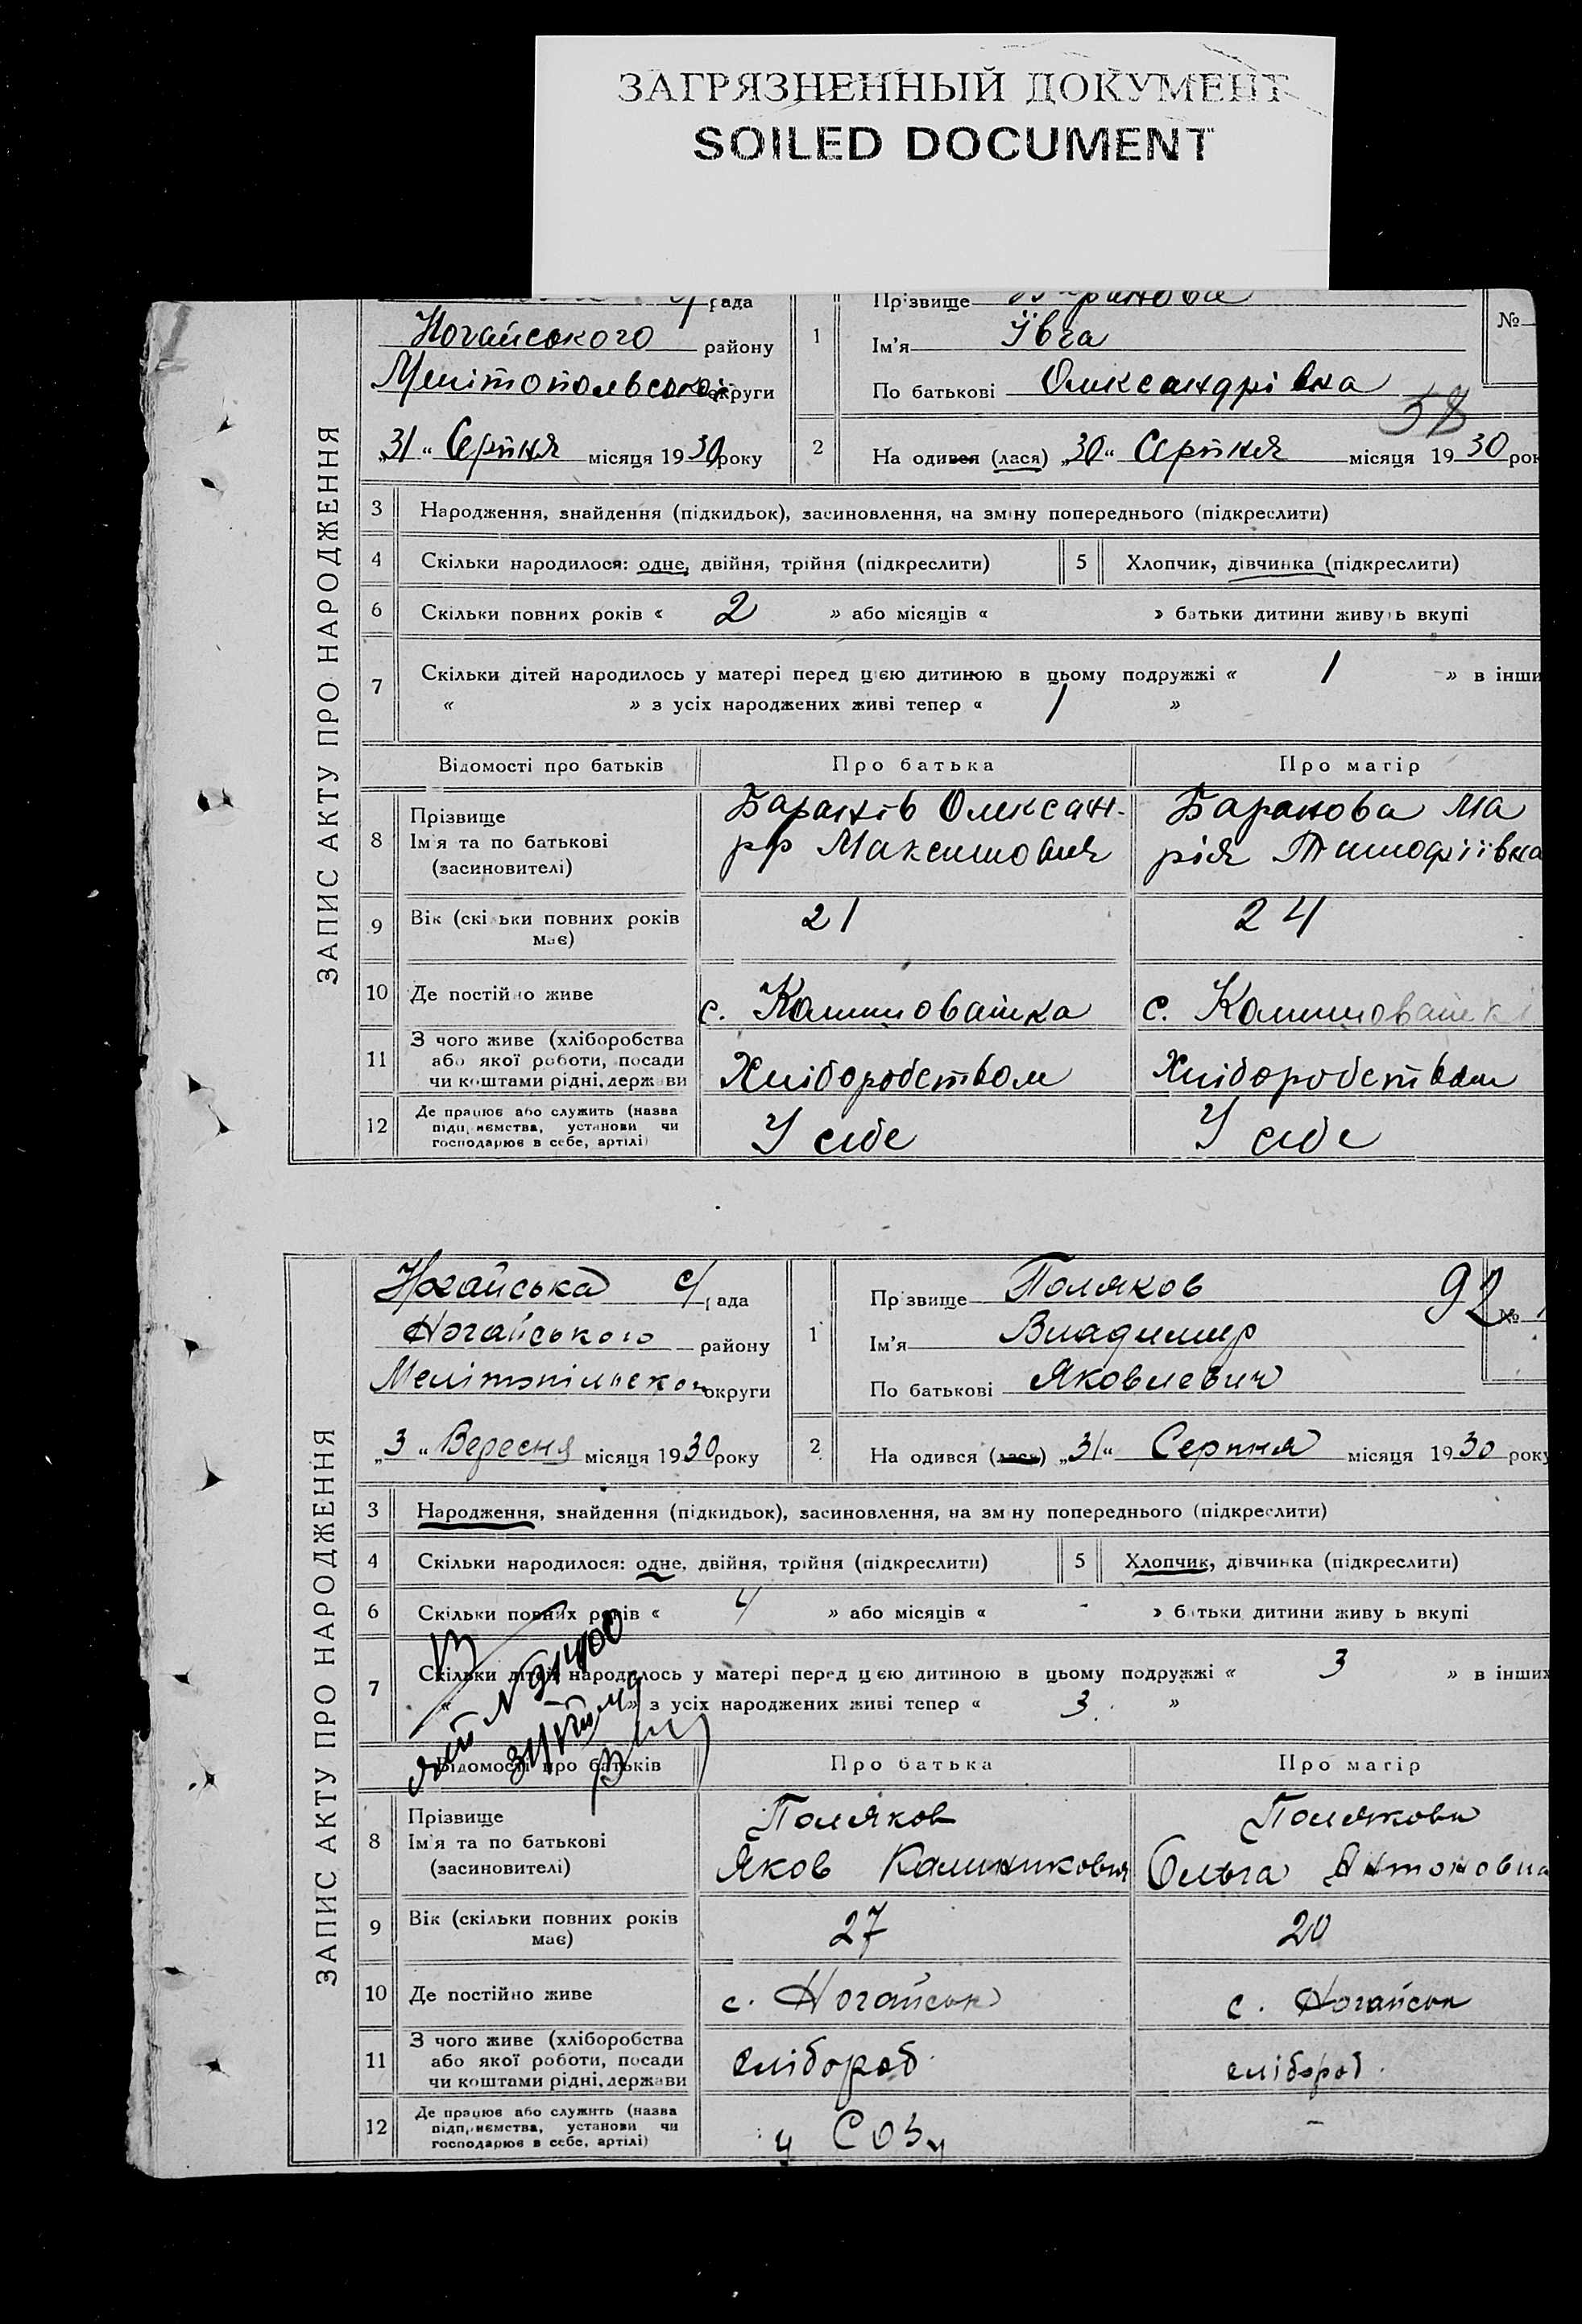 ЗАГРЯЗНЕННЫЙ ДОКУМЕНТ
SOILED DOCUMENT
ЗАПИС АКТУ ПРО НАРОДЖЕННЯ
рада
Ногайського району
Мелітопольської округи
„31“ Серпня місяця 1930 року
1 Прізвище Баранова
Ім'я Ївга
По батькові Олександрівна
№
58
2 Народився (лася) „30“ Серпня місяця 1930 рок
3 Народження, знайдення (підкидьок), засиновлення, на зміну попереднього (підкреслити)
4 Скільки народилося: одне, двійня, трійня (підкреслити) 5 Хлопчик, дівчинка (підкреслити)
6 Скільки повних років « 2 » або місяців « » батьки дитини живуть вкупі
7 Скільки дітей народилось у матері перед цією дитиною в цьому подружжі « 1 » в інши
« » з усіх народжених живі тепер « 1 »
Відомості про батьків Про батька Про матір
8 Прізвище Ім'я та по батькові (засиновителі)
Баранів Олексан-
др Максимович
Баранова Ма
рія Тимофіївна
9 Вік (скільки повних років має) 21 24
10 Де постійно живе с. Калиноватка с. Калиноватка
11 З чого живе (хліборобства або якої роботи, посади чи коштами рідні, держави Хліборобством Хліборобством
12 Де працює або служить (назва підприємства, установи чи господарює в себе, артілі) У себе У себе
ЗАПИС АКТУ ПРО НАРОДЖЕННЯ
Ногайська с/рада
Ногайського району
Мелітопільської округи
„3“ Вересня місяця 1930 року
1 Прізвище Поляков
Ім'я Владимир
По батькові Яковлевич
92 №
2 Народився (лася) „31“ Серпня місяця 1930 року
3 Народження, знайдення (підкидьок), засиновлення, на зміну попереднього (підкреслити)
4 Скільки народилося: одне, двійня, трійня (підкреслити) 5 Хлопчик, дівчинка (підкреслити)
6 Скільки повних років « 4 » або місяців « - » батьки дитини живуть вкупі
7 Скільки дітей народилось у матері перед цією дитиною в цьому подружжі « 3 » в інших
« » з усіх народжених живі тепер « 3 »
Відомості про батьків Про батька Про матір
8 Прізвище Ім'я та по батькові (засиновителі)
Поляков
Яков Калиникович
Полякова
Ольга Антоновна
9 Вік (скільки повних років має) 27 20
10 Де постійно живе с. Ногайськ с. Ногайськ
11 З чого живе (хліборобства або якої роботи, посади чи коштами рідні, держави хлібороб хлібороб
12 Де працює або служить (назва підприємства, установи чи господарює в себе, артілі) у СОЗу -